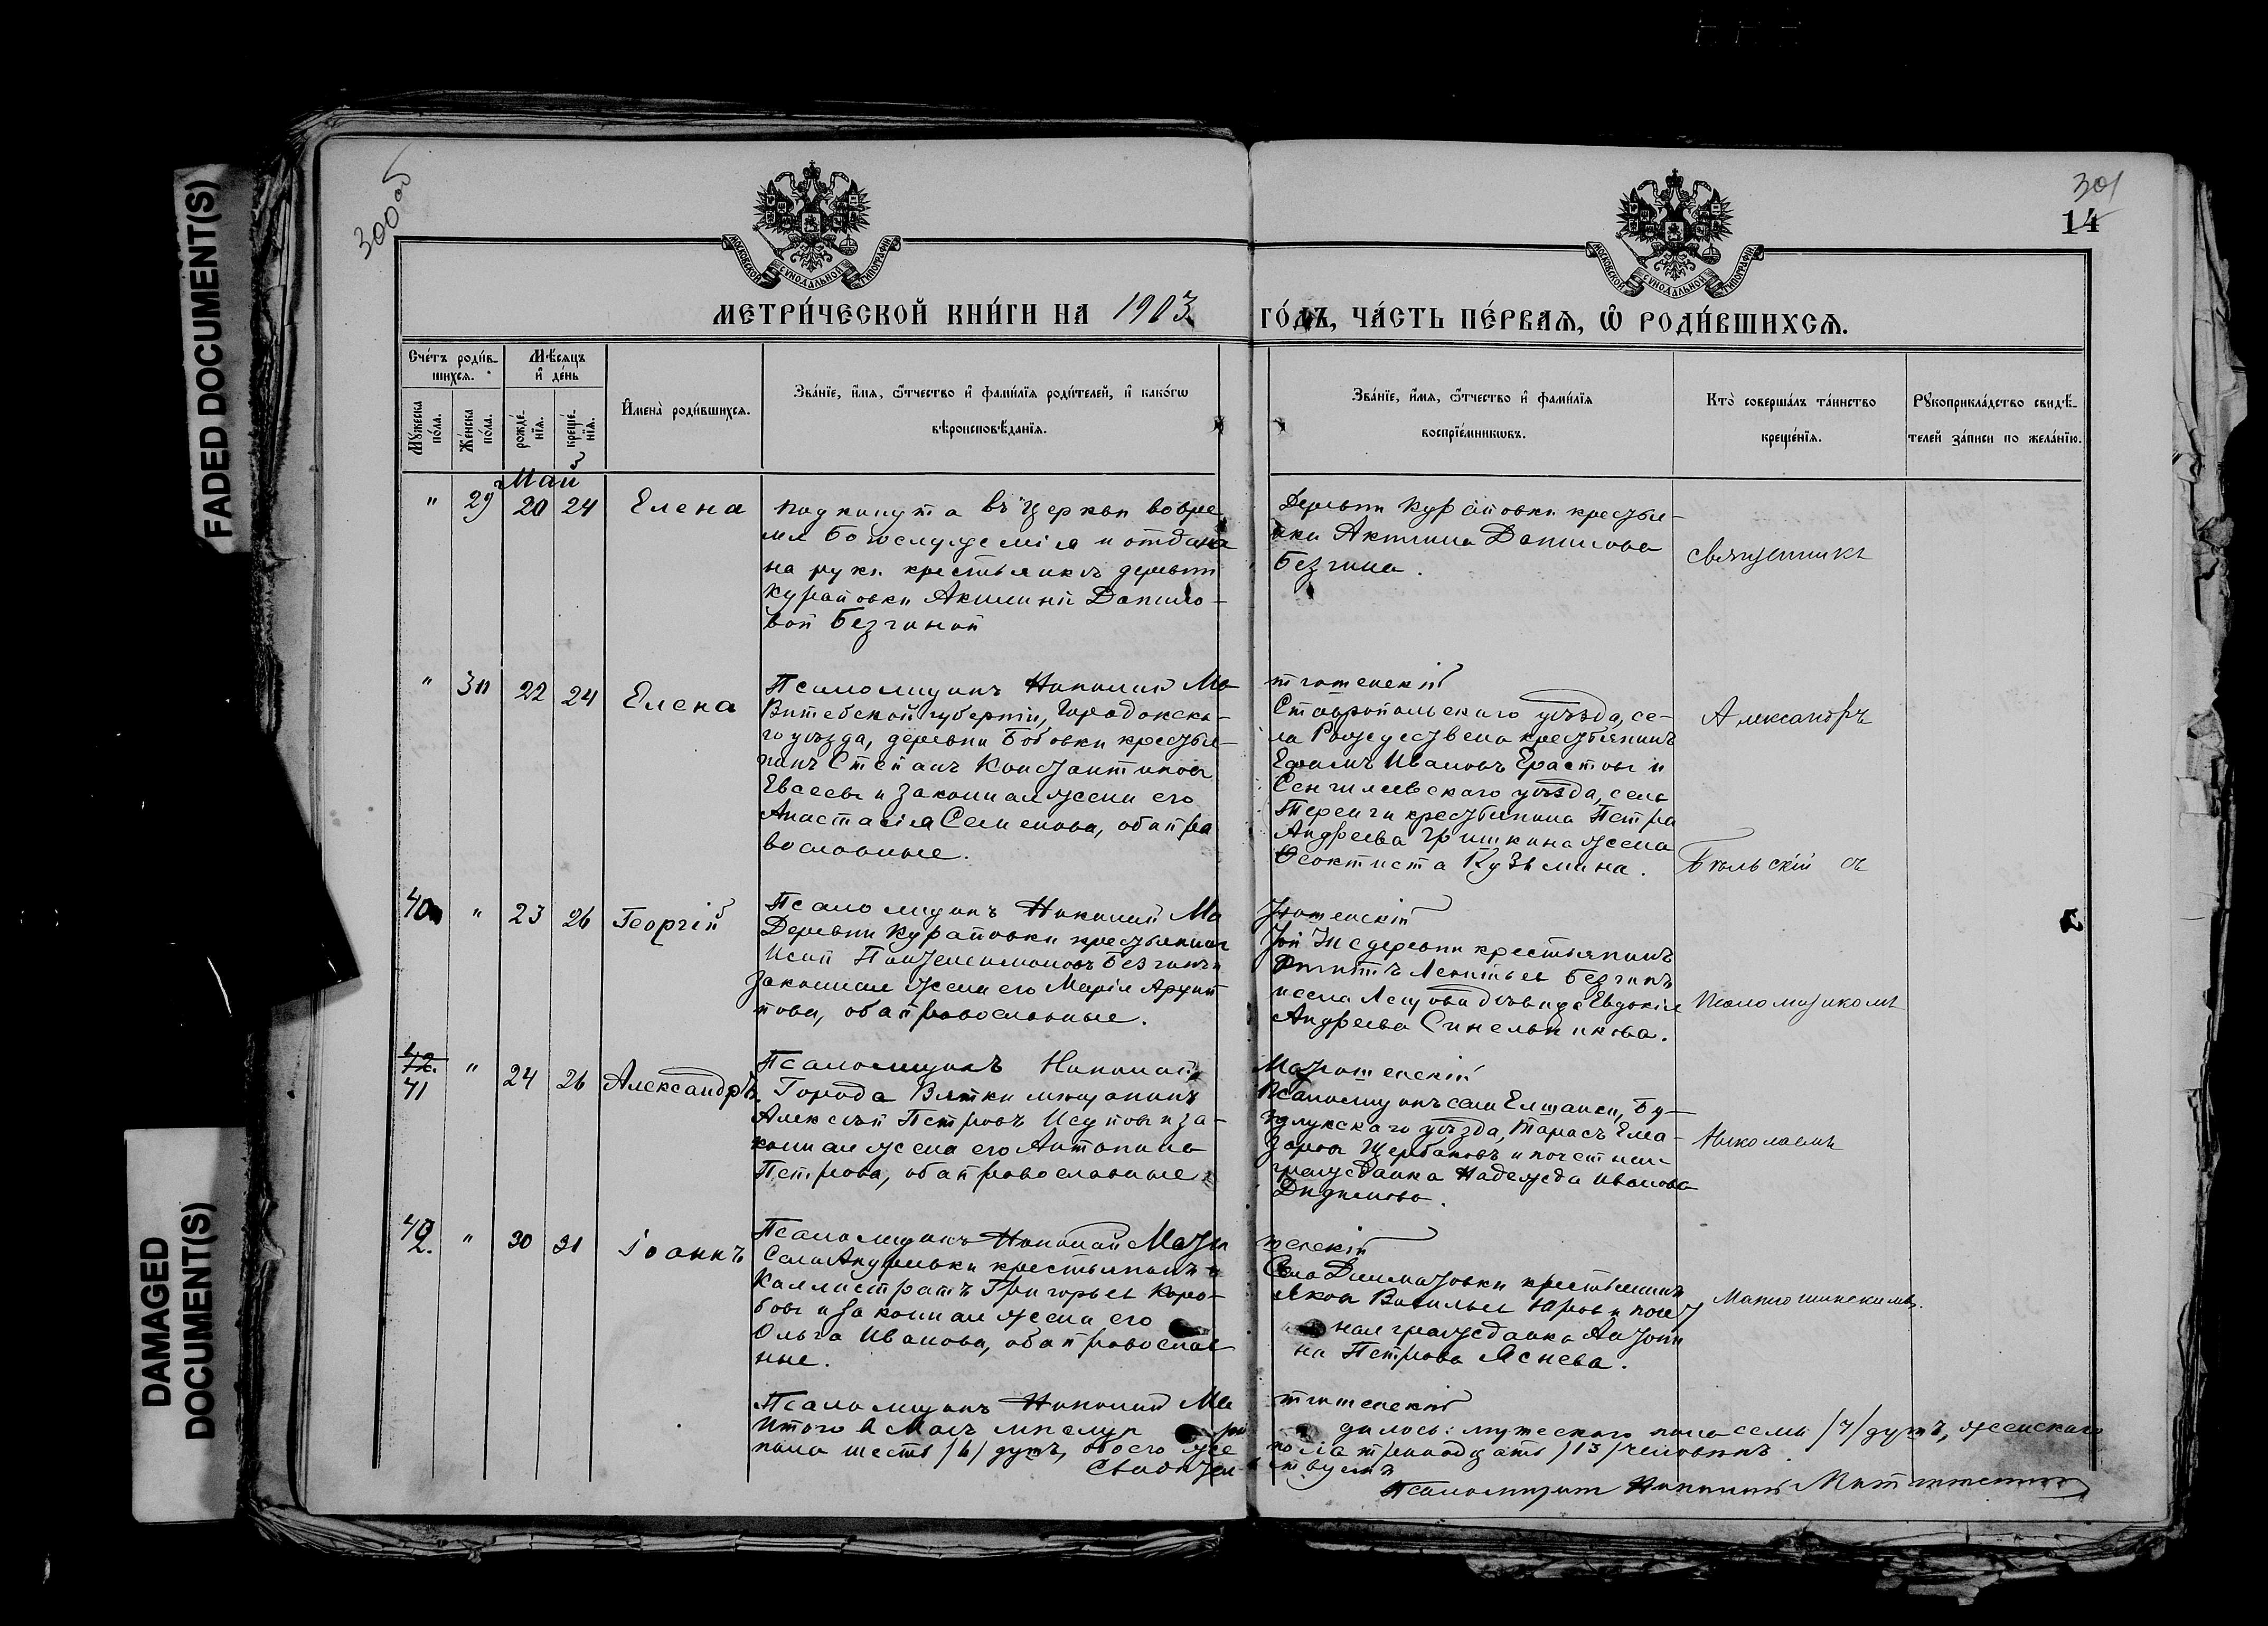 FADED DOCUMENT(S)
DAMAGED
DOCUMENT(S)
300 об
301
14
МОСКОВСКОЙ СѴНОДАЛЬНОЙ ТИПОГРАФІИ
МОСКОВСКОЙ СѴНОДАЛЬНОЙ ТИПОГРАФІИ
МЕТРИ́ЧЕСКОЙ КНИ́ГИ НА 1903 ГО́ДЪ, ЧА́СТЬ ПЕ́РВАѦ, Ѽ РОДИ́ВШИХСѦ.
Сче́тъ роди́в-
шихсѧ.
Мꙋ́жеска по́ла.
Же́нска по́ла.
Мѣ́сѧцъ
и҆ де́нь
рожде́нїѧ.
креще́нїѧ.
И҆мена̀ роди́вшихсѧ.
Зва́нїе, и҆́мѧ, ѻ҆́тчество и҆ фами́лїѧ роди́телей, и҆ како́гѡ
вѣроисповѣ́данїѧ.
Зва́нїе, и҆́мѧ, ѻ҆́тчество и҆ фами́лїѧ
воспрїе́мникѡвъ.
Кто̀ соверша́лъ та́инство
креще́нїѧ.
Рꙋкоприкла́дство свидѣ́-
телей за́писи по жела́нїю.
Май
" 29 20 24 Елена
подкинута въ церкви во вре
мя Богослуженія и отдана
на руки крестьянкѣ деревни
Кураповки Акилинѣ Данило-
вой Безгиной
Деревни Кураповки крестья-
нка Акилина Данилова
Безгина.
Священникъ
" 30 22 24 Елена
Псаломщикъ Николай Ма
тюшенскій
Витебской губерніи, Городокска-
го уѣзда, деревни Бобовки крестья-
нинъ Стефанъ Константиновъ
Евсеевъ и законная жена его
Анастасія Семенова, оба пра
вославные.
Ставропольскаго уѣзда, се-
ла Рождествена крестьянинъ
Ефимъ Ивановъ Ерастовъ и
Сенгилеевскаго уѣзда, села
Тереньги крестьянина Петра
Андреева Гришкина жена
Феоктиста Кузьмина.
Александръ
Бѣльскій съ
40 " 23 26 Георгій
Псаломщикъ Николай Ма
тюшенскій
Деревни Кураповки крестьянинъ
Исай Пантелеимоновъ Безгинъ и
законная жена его Марія Архип
пова, оба православные.
Той же деревни крестьянинъ
Леонтьевъ Безгинъ
дѣвица Евдокія
Андреева Синельникова.
Псаломщикомъ
42.
41 " 24 26 Александръ
Псаломщикъ Николай
Матюшенскій
Города Вятки мѣщанинъ
Алексѣй Петровъ Исуповъ и за-
конная жена его Антонина
Петрова, оба православные
Псаломщикъ села Елшанки, Бу-
зулукскаго уѣзда, Тарасъ
Щербаковъ и почетная
гражданка Надежда Иванова
Николаемъ
42. " 30 31 Іоаннъ
Псаломщикъ Николай Матю
шенскій
Села Андреевки крестьянинъ
Каллистратъ Григорьевъ Коро-
бовъ и законная жена его
Ольга Иванова, оба православ
ные.
Села крестьянинъ
Яковъ Васильевъ и почет
ная гражданка Антони
на Петрова Яснева.
Матюшинскимъ.
Псаломщикъ Николай Ма
тюшенскій
Итого в Маѣ мѣсяцѣ ро
дилось: мужескаго пола семь /7/ душъ, женскаго
пола шесть /6/ душъ, обоего же
пола тринадцать /13/ человѣкъ.
Свидѣтель
ствуетъ
Псаломщикъ Николай Матюшенскій